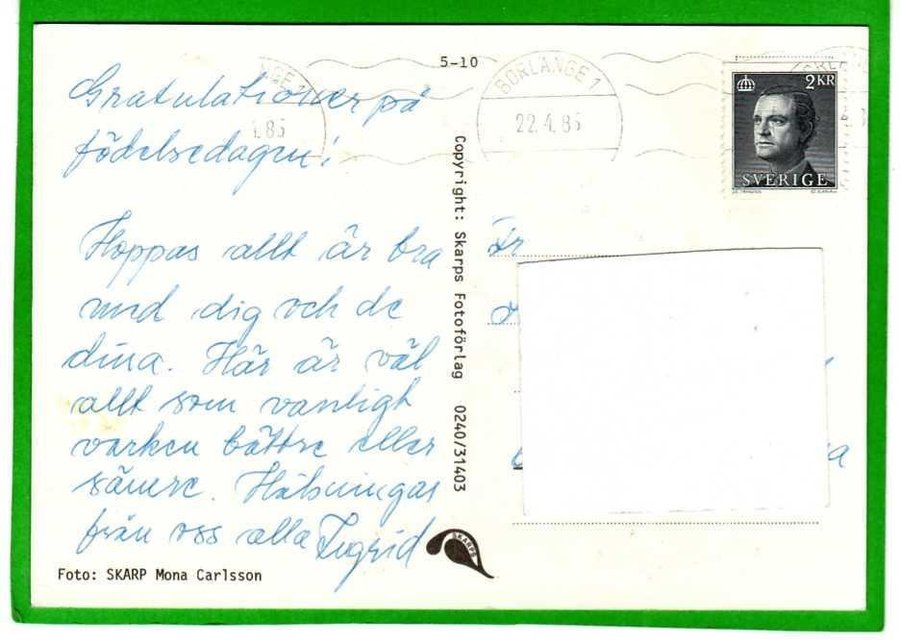 5-10
BORLÄNGE 1
22.4.85
2 KR
SVERIGE
Gratulationer på
födelsedagen!
Hoppas allt är bra
med dig och de
dina. Här är väl
allt som vanligt
varken bättre eller
sämre. Hälsningar
från oss alla Ingrid
Foto: SKARP Mona Carlsson
Copyright: Skarps Fotoförlag 0240/31403
SKARPS
Fr